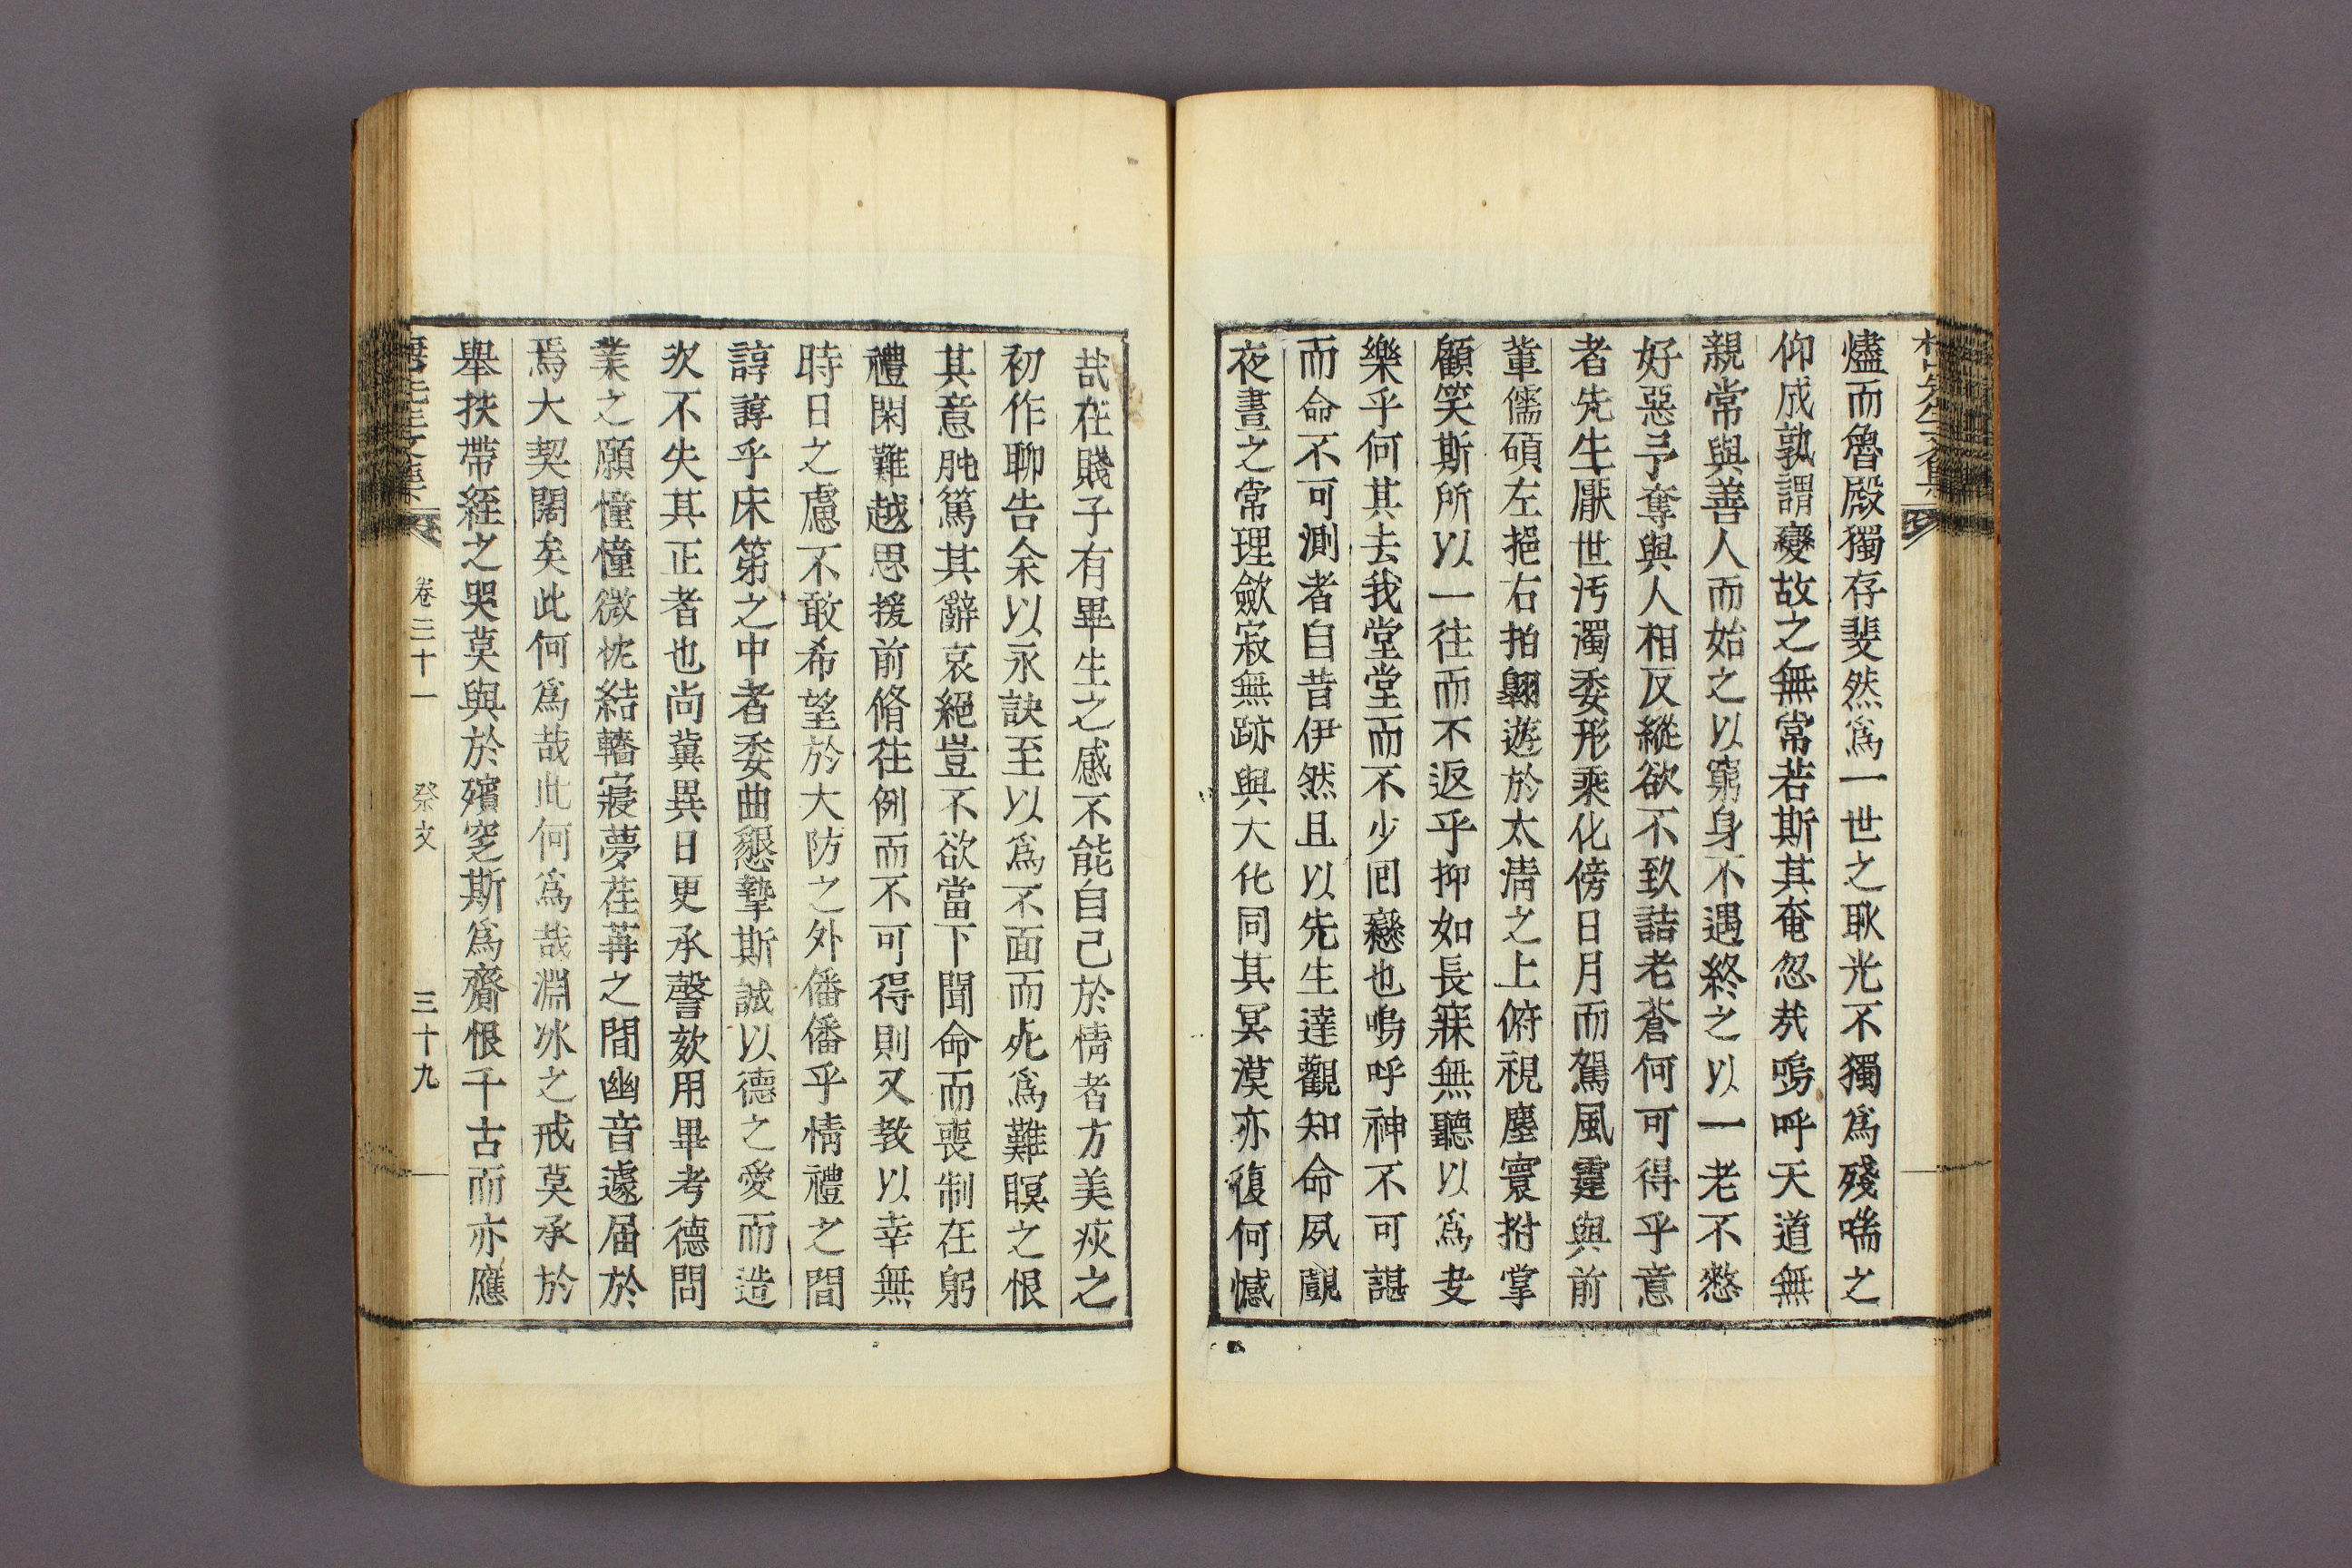 燼而魯殿獨存斐然爲一世之耿光不獨爲殘喘之
仰成孰謂變故之無常若斯其奄忽㢤嗚呼天道無
親常與善人而始之以窮身不遇終之以一老不憗
好惡予奪與人相反縱欲不致詰老蒼何可得乎意
者先生厭世汚濁委形乘化傍日月而駕風霆與前
輩儒碩左挹右拍翺遊於太淸之上俯視塵寰拊掌
顧笑斯所以一往而不返乎抑如長寐無聽以爲
樂乎何其去我堂堂而不少回戀也嗚呼神不可諶
而命不可測者自昔伊然且以先生達觀知命夙覰
夜晝之常理歛寂無跡與大化同其冥漠亦復何憾
哉在賤子有畢生之慼不能自己於情者方美疢之
初作聊告余以永訣至以爲不面而死爲難瞑之恨
其意肫篤其辭哀絕豈不欲當下聞命而喪制在躬
禮閑難越思援前脩徃例而不可得則又敎以幸無
時日之慮不敢希望於大防之外僠僠乎情禮之間
諄諄乎床第之中者委曲懇摯斯誠以德之愛而造
次不失其正者也尚冀異日更承謦欬用畢考德問
業之願憧憧微忱結轖寢夢荏苒之間幽音遽届於
焉大契闊矣此何爲哉此何爲哉淵冰之戒莫承於
舉扶帶絰之哭莫與於殯窆斯爲齎恨千古而亦應
卷三十一 祭文 三十九